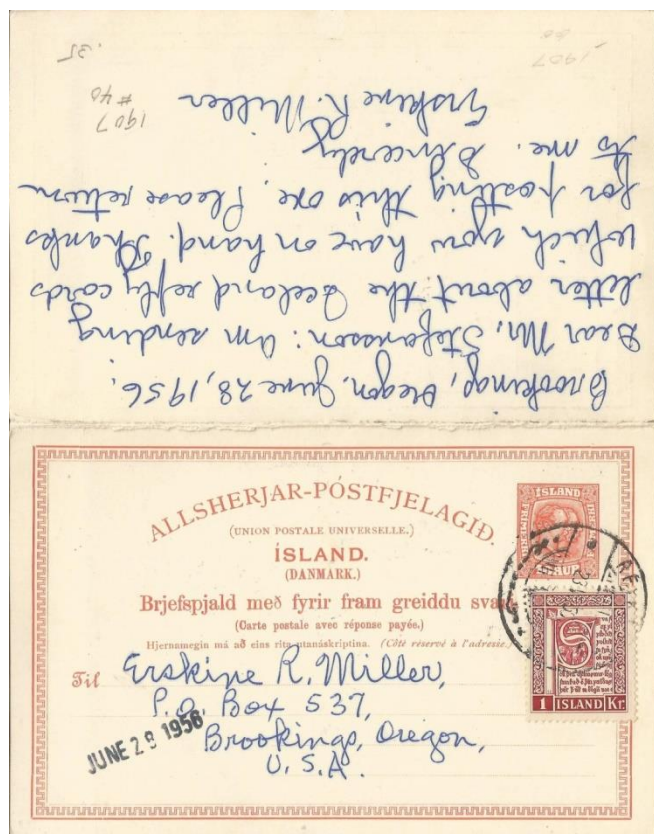 Brookings, Oregon. June 28, 1956.
Dear Mr. Stefansson: Am sending
letter about the Iceland reply cards
which you have on hand. Thanks
for posting this one. Please return
to me. Sincerely
Erskine R. Miller
1907
#40
.35
1907
ALLSHERJAR-PÓSTFJELAGIÐ.
(UNION POSTALE UNIVERSELLE.)
ÍSLAND.
(DANMARK.)
Brjefspjald með fyrir fram greiddu svari
(Carte postale avec réponse payée.)
Hjernamegin má að eins rita utanáskriptina. (Côté réservé à l'adresse.)
ÍSLAND
Til Erskine R. Miller,
P.O. Box 537,
Brookings, Oregon,
U.S.A.
JUNE 29 1956
1 ISLAND Kr.